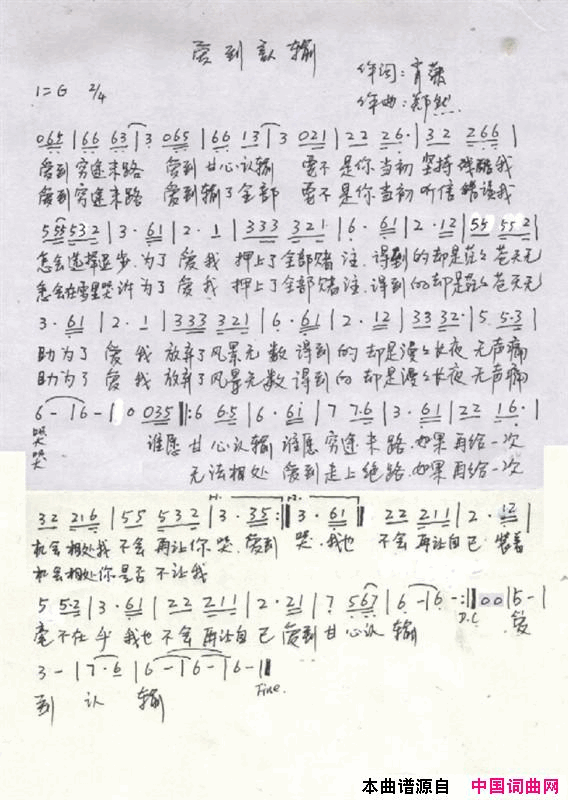 爱到认输
作词：肖蒙
1=G 2/4
作曲：郑然
065 | 66 63 | 3 065 | 66 13 | 3 021 | 22 26· | 32 266 |
爱到穷途末路 爱到甘心认输 要不是你当初坚持残酷我
爱到穷途末路 爱到输了全部 要不是你当初听信错误我
55532 | 3· 61 | 2· 1 | 333 321 | 6· 61 | 2· 12 | 55 552 |
怎会选择退步.为了爱我 押上了全部赌注.得到的却是茫茫苍天无
怎会在雪里哭泣为了爱我 押上了全部赌注.得到的却是茫茫苍天无
3· 61 | 2· 1 | 333 321 | 6· 61 | 2· 12 | 33 32· | 5 5·3 |
助为了爱我放弃了风景无数得到的却是漫漫长夜无声痛
助为了爱我放弃了风景无数得到的却是漫漫长夜无声痛
6 - | 6 - | 0 035 :6 6·5 | 6· 61 | 7 7·6 | 3· 61 | 22 16· |
哭 谁愿甘心认输谁愿穷途末路.如果再给一次
哭 无法相处 爱到走上绝路.如果再给一次
32 216 | 55 532 | 3· 35 : 3· 61 | 22 211 | 2· 12 |
机会相处我不会再让你哭.爱到 哭.我也不会再让自己装着
机会相处你是否不让我
5 5·2 | 3· 61 | 22 211 | 2· 21 | 7 567 | 6 - | 6 - : 00 | 5 - |
D.C
毫不在乎我也不会再让自己爱到甘心认输 爱
3 - | 7·6 | 6 - | 6 - | 6 - |
Fine.
到 认 输
本曲谱源自 中国词曲网